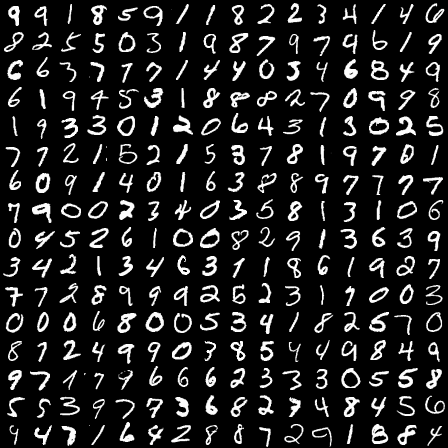 9 9 1 8 5 9 1 1 8 2 2 3 4 1 4 6
8 2 5 5 0 3 1 9 8 7 9 7 9 6 1 9
6 6 3 7 7 7 1 4 4 0 5 4 6 8 4 9
6 1 9 4 5 3 1 8 8 8 2 7 0 9 9 8
1 9 3 3 0 1 2 0 6 4 3 1 3 0 2 5
7 7 2 1 5 2 1 5 3 7 8 1 9 7 0 1
6 0 9 1 4 0 1 6 3 8 8 9 7 7 7 7
7 9 0 0 2 3 4 0 3 5 8 1 3 1 0 6
0 4 5 2 6 1 0 0 8 2 9 1 3 6 3 9
3 4 2 1 3 4 6 3 1 1 8 6 1 9 2 7
7 7 2 8 9 9 9 2 5 2 3 1 1 0 0 3
0 0 0 6 8 0 0 5 3 4 1 8 2 5 7 0
8 7 2 4 9 9 0 3 8 5 4 4 9 8 4 9
9 7 1 7 9 6 6 6 2 3 3 3 0 5 5 8
5 5 3 9 7 7 3 6 8 2 7 4 8 4 5 6
4 4 7 1 6 4 2 8 8 7 2 9 1 8 8 4